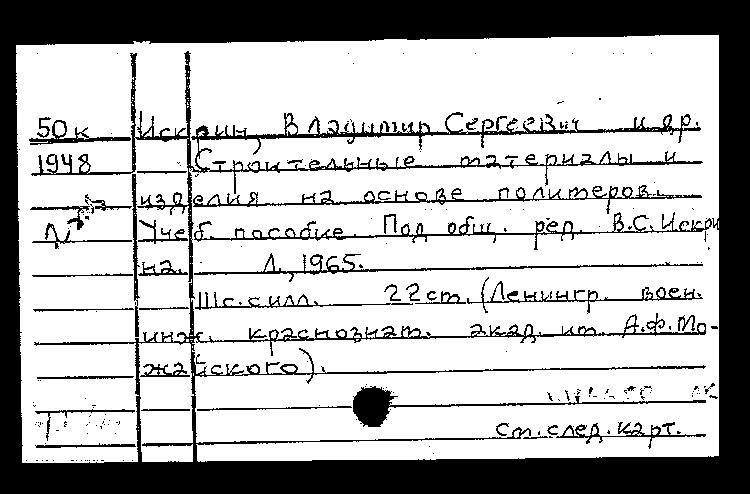 50к Искрин, Владимир Сергеевич и др.
1948 Строительные материалы и
изделия на основе полимеров.
Учеб. пособие. Под общ. ред. В.С. Искри
на. Л., 1965.
с илл. 22 см. (Ленингр. воен.
инж. краснознам. акад. им. А.Ф. Мо-
жайского).
См. след. карт.